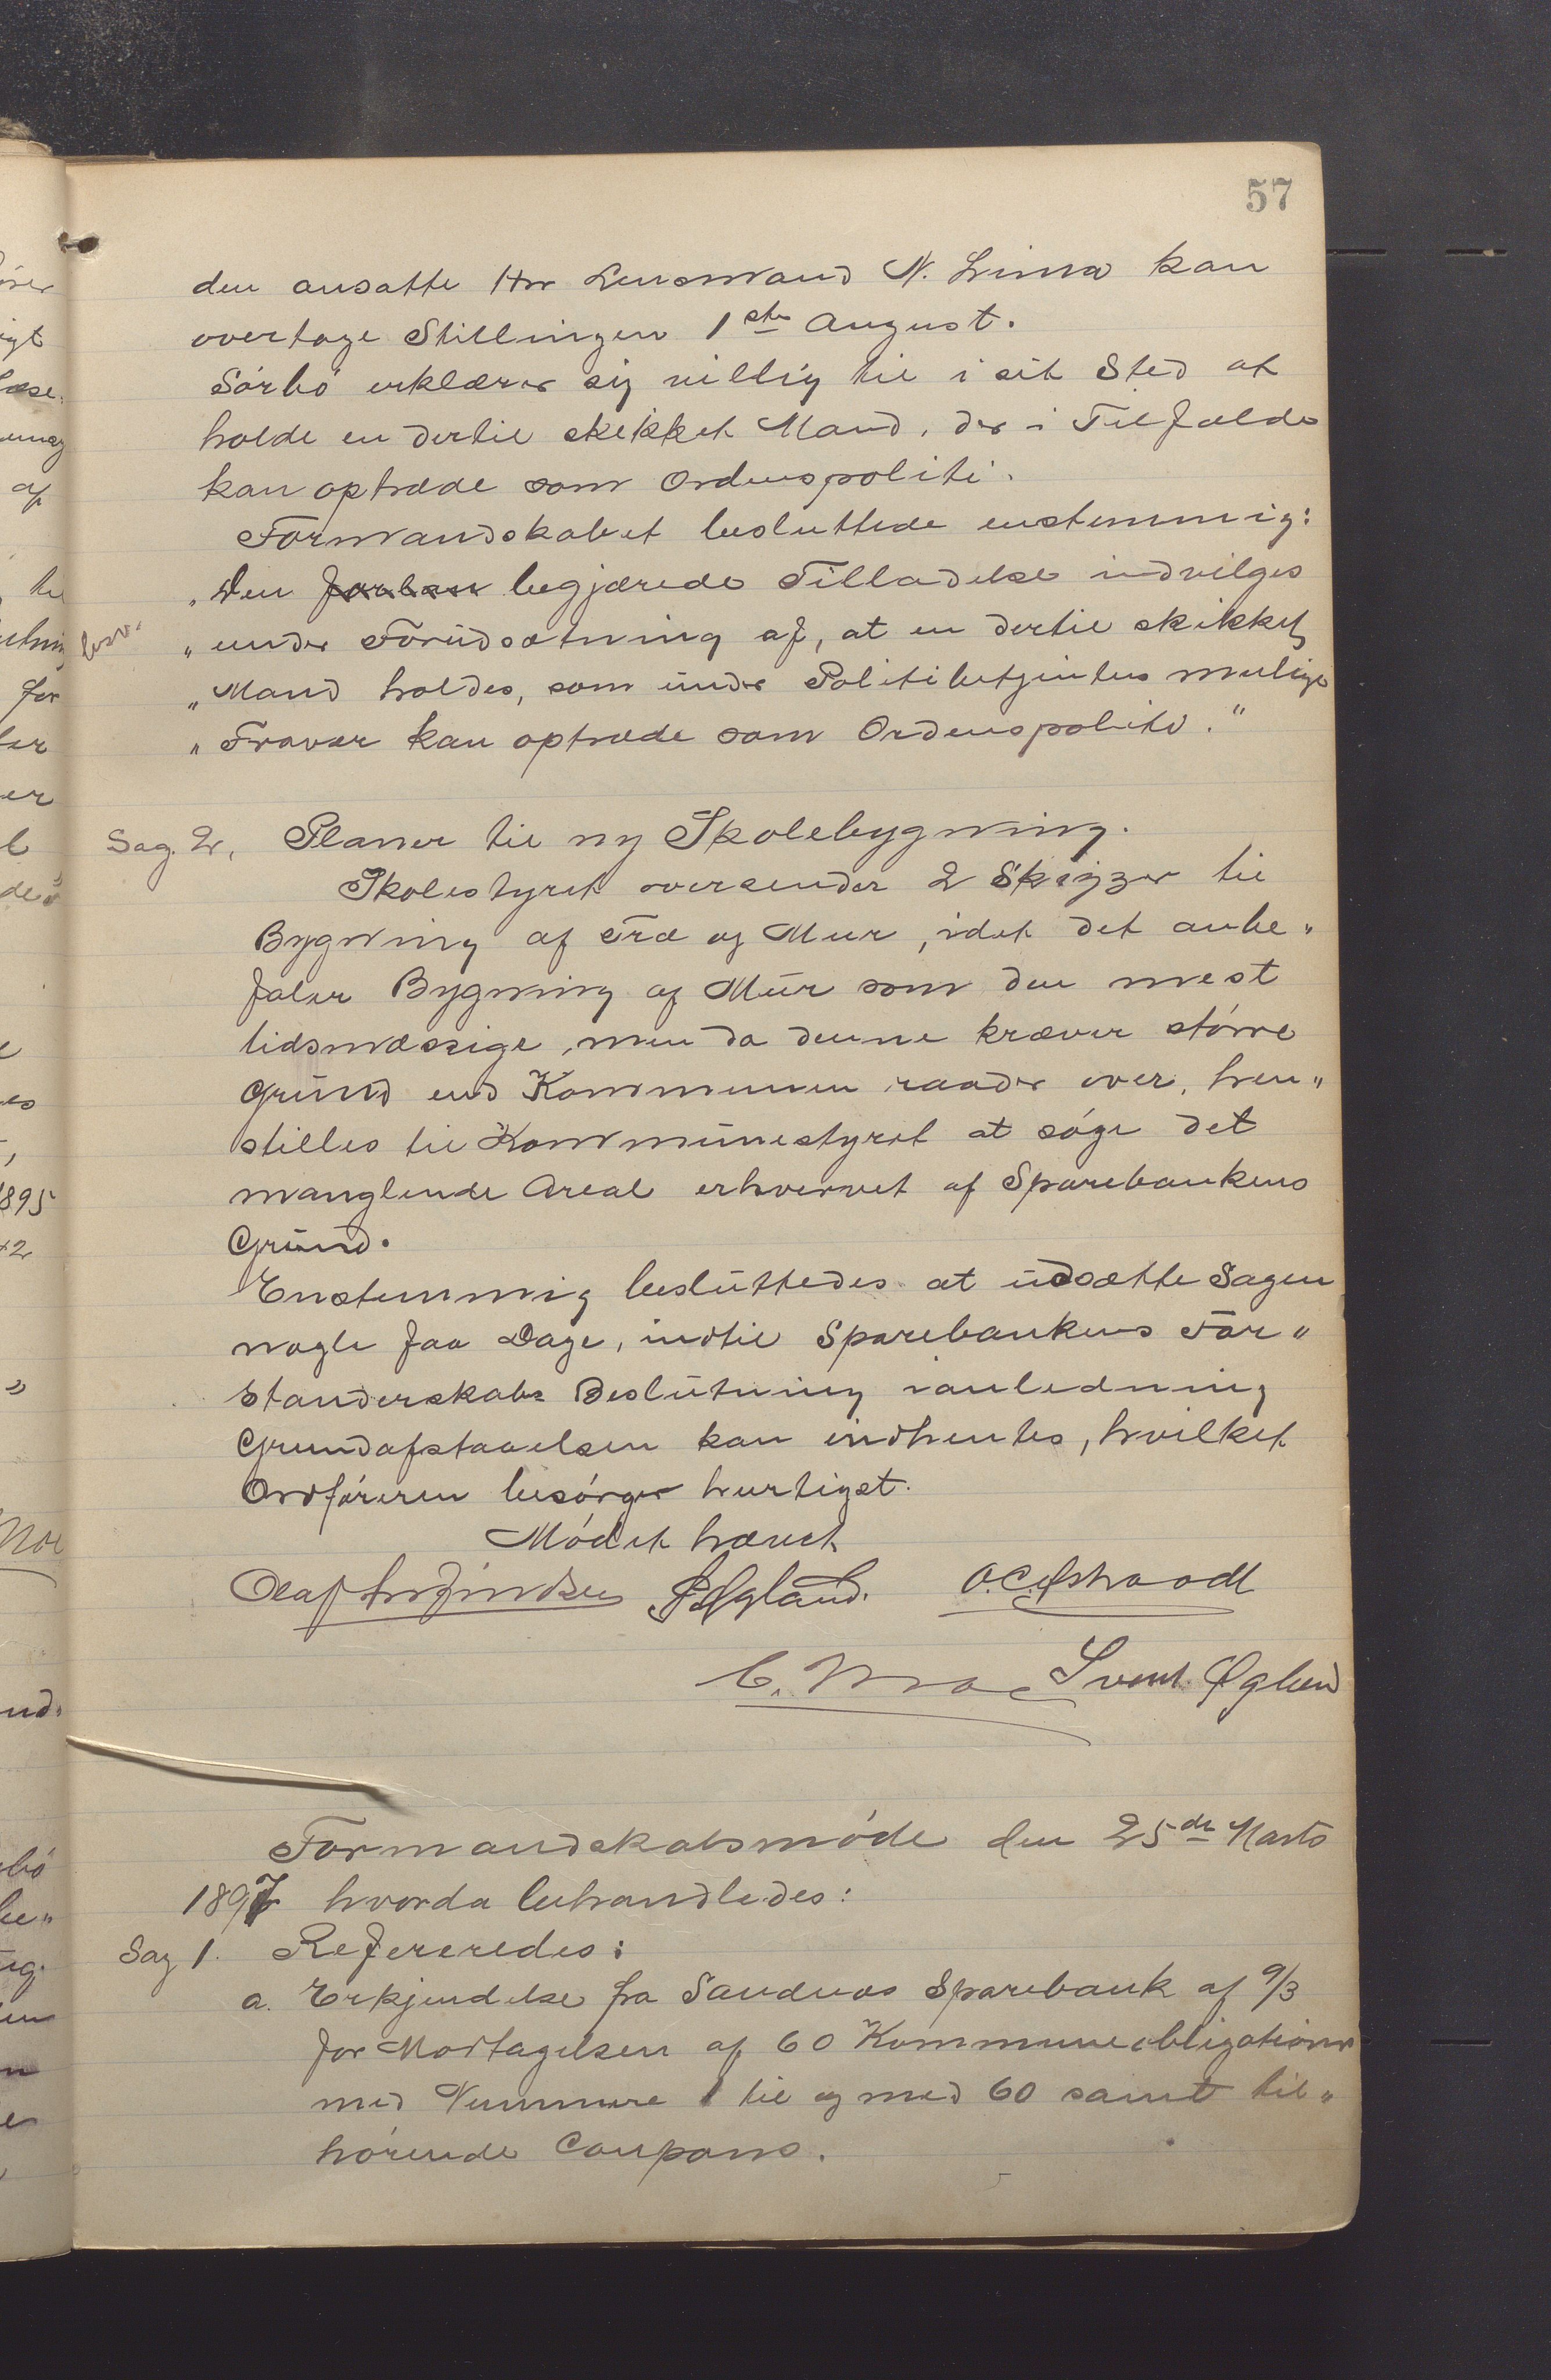 57
den ansatte Hr Lensmand N. Lima kan
overtage Stillingen 1ste August.
Sörbö erklærer sig villig til i sit Sted at
holde en dertil skikket Mand, der i Tilfælde
kan optræde som Ordenspoliti.
Formandskabet besluttede enstemmig:
„Den begjærede Tilladelse indvilges
„under Forudsætning af, at en dertil skikket
„Mand holdes, som under Politibetjentens mulige
„Fravær kan optræde som Ordenspoliti."
Sag. 2, Planer til ny Skolebygning.
Skolestyret oversender 2 Skizzer til
Bygning af Træ og Mur, idet det anbe„
faler Bygning af Mur som den mest
tidsmæssige, men da denne kræver større
Grund end Kommunen raader over, hen„
stilles til Kommunestyret at søge det
manglende Areal erhvervet af Sparebankens
Grund.
Enstemmig besluttedes at udsætte Sagen
nogle faa Dage, indtil Sparebankens For„
standerskabs Beslutning ianledning
Grundafstaaelsen kan indhentes, hvilket
Ordføreren besørger hurtigst.
Mödet hævet
Øgland.
Svend Øglend
Formandskabsmøde den 25de Marts
1897 hvorda behandledes:
Sag 1. Refereredes:
a. Erkjendelse fra Sandnæs Sparebank af 9/3
for Modtagelsen af 60 Kommuneobligationer
med Nummere 1 til og med 60 samt til„
hørende Coupons.